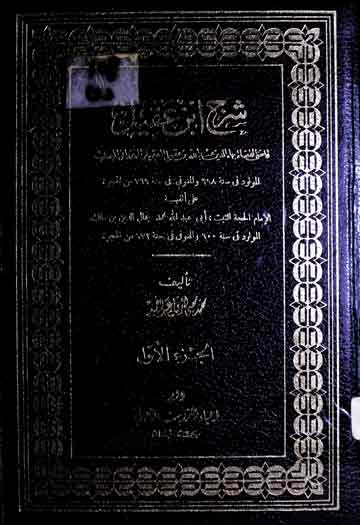 شرح ابن عقيل
قاضي القضاة بهاء الدين عبد الله بن عقيل العقيلي الهمداني المصري
المولود في سنة ٦٩٨ والمتوفى في سنة ٧٦٩ من الهجرة
على ألفية
الإمام الحجة الثبت : أبي عبد الله محمد جمال الدين بن مالك
المولود في سنة ٦٠٠ والمتوفى في سنة ٦٧٢ من الهجرة
تأليف
محمد محيي الدين عبد الحميد
الجزء الأول
دار
إحياء التراث العربي
بيروت لبنان